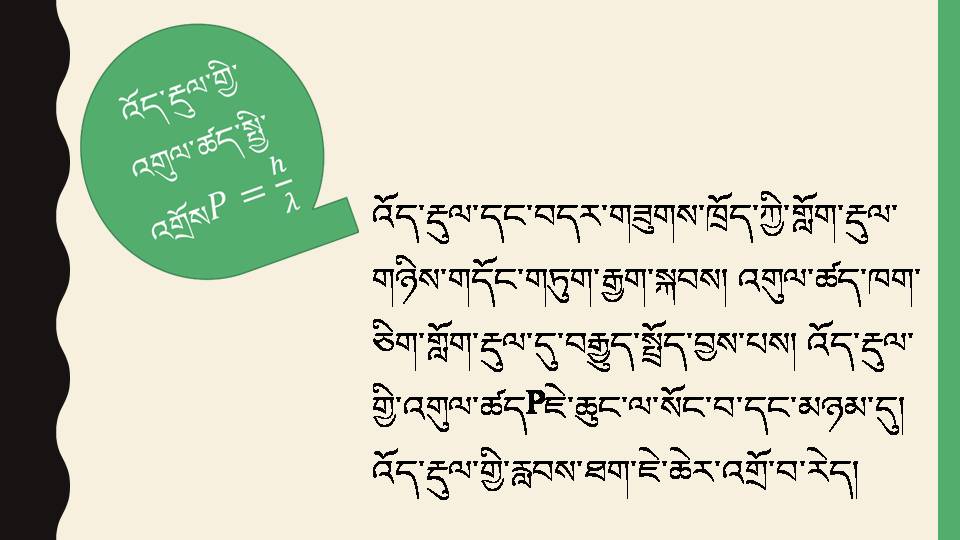 འོད་རྡུལ་གྱི་
འགུལ་ཚད་སྤྱི་
འགྲོས P = h/λ
འོད་རྡུལ་དང་བདར་གཟུགས་ཁྲོད་ཀྱི་གློག་རྡུལ་
གཉིས་གདོང་གཏུག་རྒྱག་སྐབས། འགུལ་ཚད་ཁག་
ཅིག་གློག་རྡུལ་དུ་བརྒྱུད་སྤྲོད་བྱས་པས། འོད་རྡུལ་
གྱི་འགུལ་ཚད P ཇེ་ཆུང་ལ་སོང་བ་དང་མཉམ་དུ།
འོད་རྡུལ་གྱི་རླབས་ཐག་ཇེ་ཆེར་འགྲོ་བ་རེད།